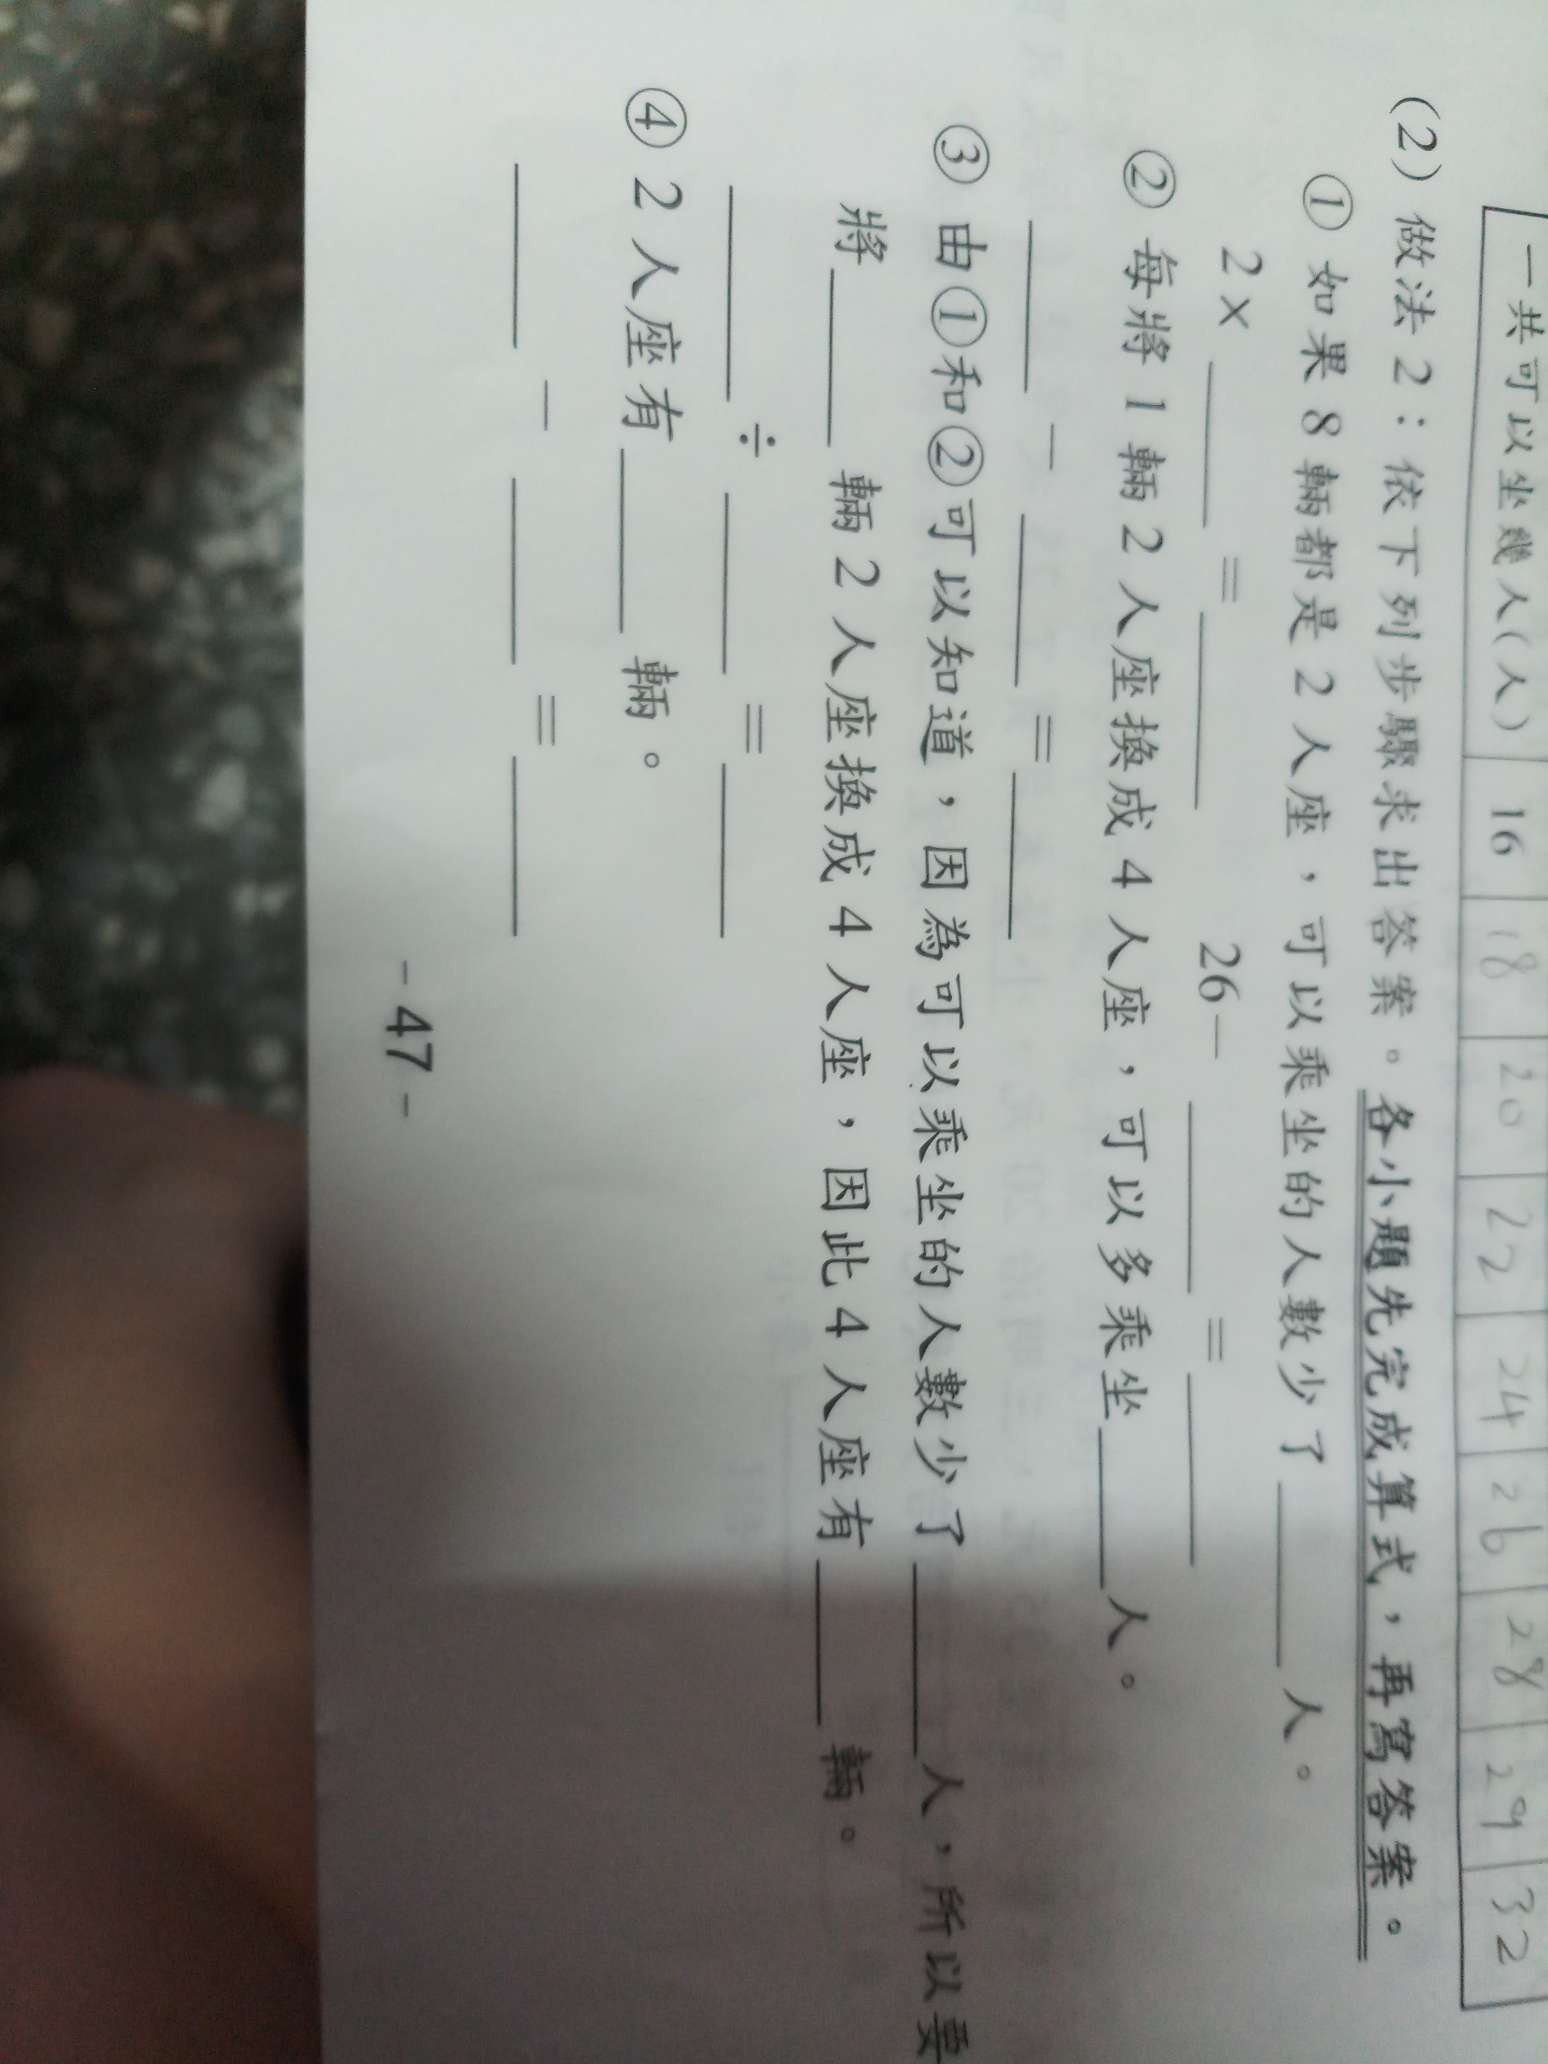 一共可以坐幾人(人) 16 18 20 22 24 26 28 29 32
(2) 做法2：依下列步驟求出答案。各小題先完成算式，再寫答案。
① 如果8輛都是2人座，可以乘坐的人數少了____人。
2×____=____ 26-____=____
② 每將1輛2人座換成4人座，可以多乘坐____人。
____-____=____
③ 由①和②可以知道，因為可以乘坐的人數少了____人，所以要
將____輛2人座換成4人座，因此4人座有____輛。
____÷____=____
④ 2人座有____輛。
____-____=____
-47-